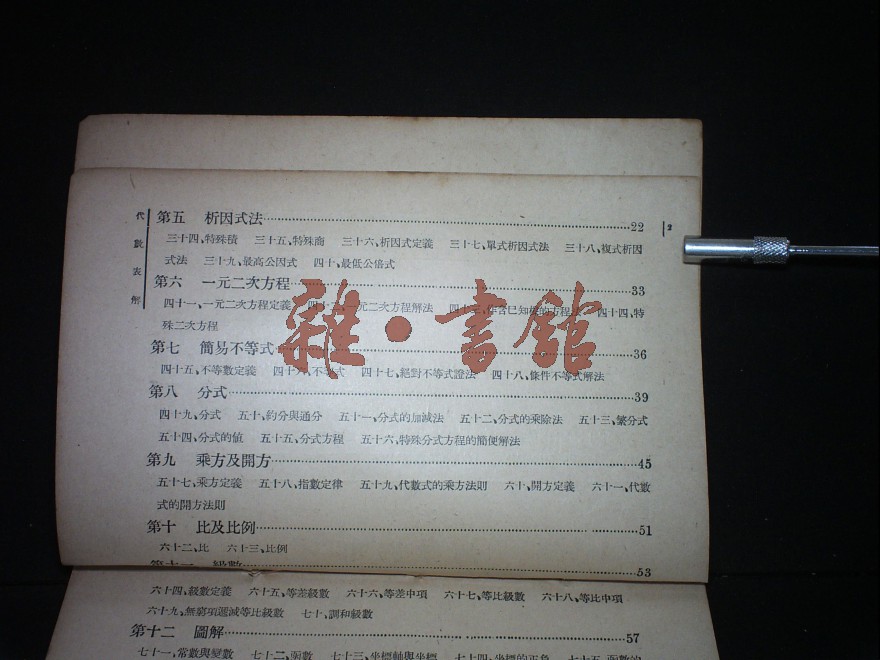 代數表解
2
第五 析因式法……22
三十四、特殊積 三十五、特殊商 三十六、析因式定義 三十七、單式析因式法 三十八、複式析因
式法 三十九、最高公因式 四十、最低公倍式
第六 一元二次方程……33
四十一、一元二次方程定義 四十二、一元二次方程解法 四十三、作含已知根的方程式 四十四、特
殊二次方程
第七 簡易不等式……36
四十五、不等數定義 四十六、不等式 四十七、絕對不等式證法 四十八、條件不等式解法
第八 分式……39
四十九、分式 五十、約分與通分 五十一、分式的加減法 五十二、分式的乘除法 五十三、繁分式
五十四、分式的値 五十五、分式方程 五十六、特殊分式方程的簡便解法
第九 乘方及開方……45
五十七、乘方定義 五十八、指數定律 五十九、代數式的乘方法則 六十、開方定義 六十一、代數
式的開方法則
第十 比及比例……51
六十二、比 六十三、比例
第十一 級數……53
六十四、級數定義 六十五、等差級數 六十六、等差中項 六十七、等比級數 六十八、等比中項
六十九、無窮項遞減等比級數 七十、調和級數
第十二 圖解……57
七十一、常數與變數 七十二、函數 七十三、坐標軸與坐標 七十四、坐標的正負 七十五、函數的
雜·書館